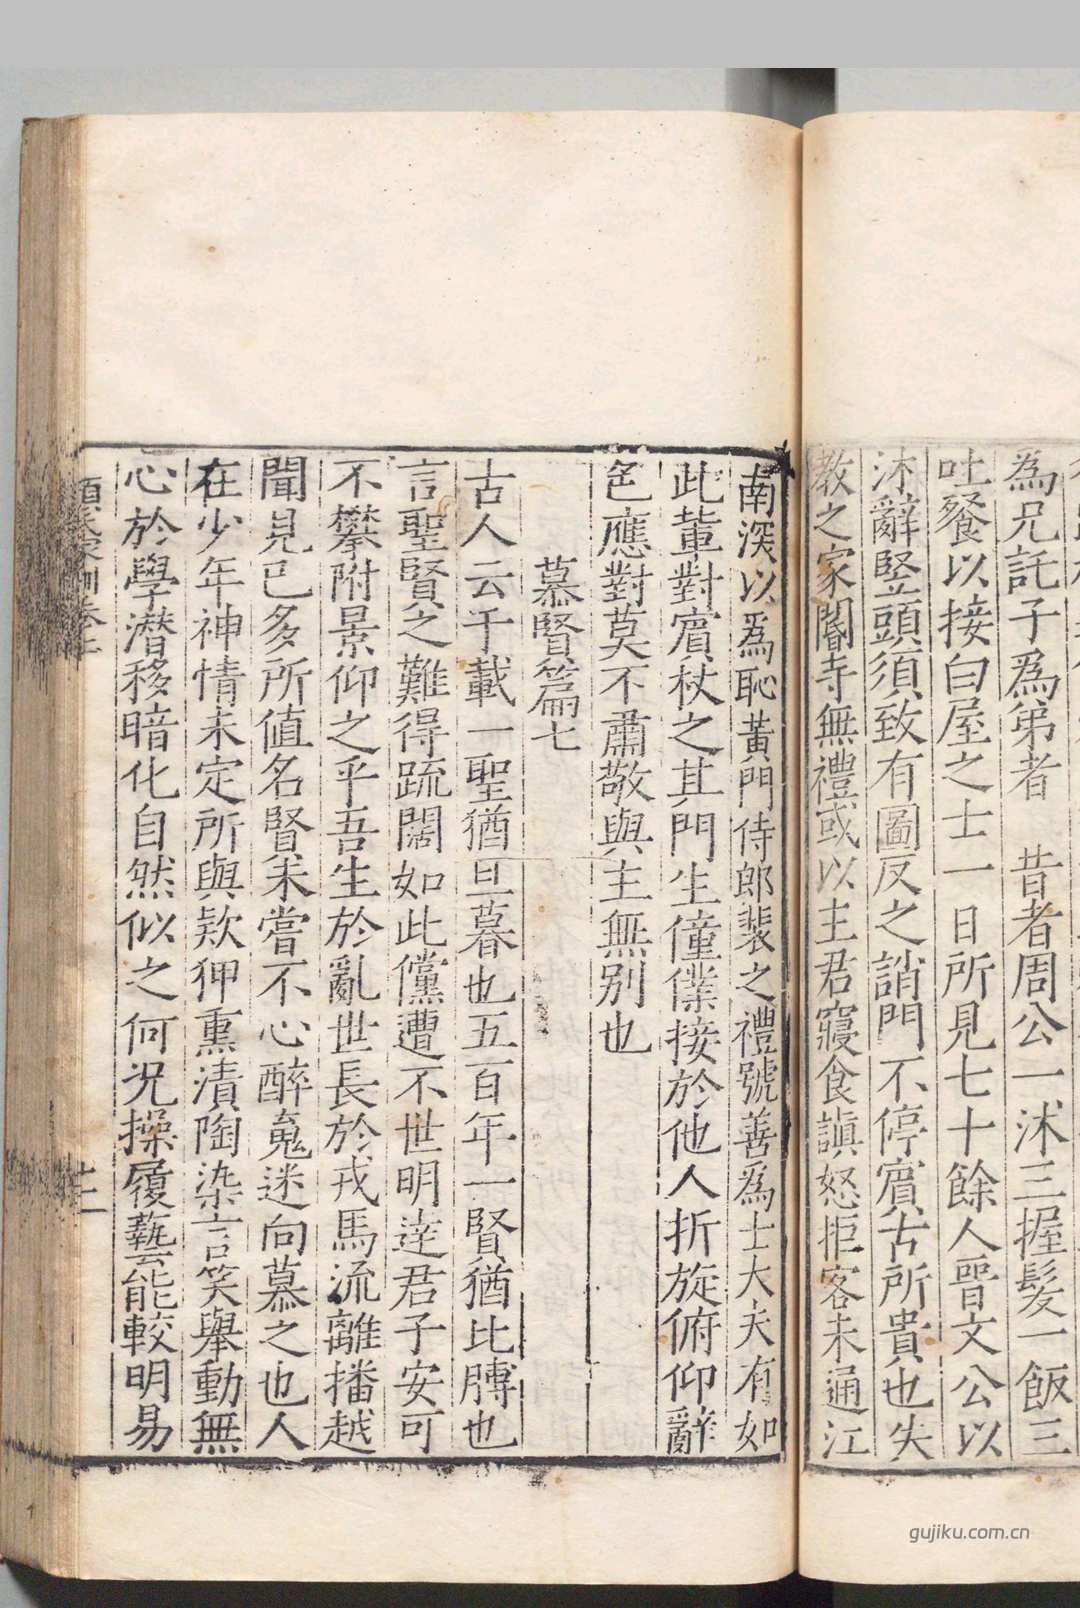 為兄託子為弟者　昔者周公一沐三握髮一飯三
吐餐以接白屋之士一日所見七十餘人晉文公以
沐辭竪頭須致有圖反之誚門不停賓古所貴也失
教之家閽寺無禮或以主君寢食嗔怒拒客未通江
南深以為恥黃門侍郎裴之禮號善為士大夫有如
此輩對賓杖之其門生僮僕接於他人折旋俯仰辭
色應對莫不肅敬與主無别也
慕賢篇七
古人云千載一聖猶旦暮也五百年一賢猶比膊也
言聖賢之難得疏闊如此儻遭不世明達君子安可
不攀附景仰之乎吾生於亂世長於戎馬流離播越
聞見已多所值名賢未嘗不心醉魂迷向慕之也人
在少年神情未定所與欵狎熏漬陶染言笑舉動無
心於學潛移暗化自然似之何況操履藝能較明易
顏氏家訓卷上
十二
gujiku.com.cn